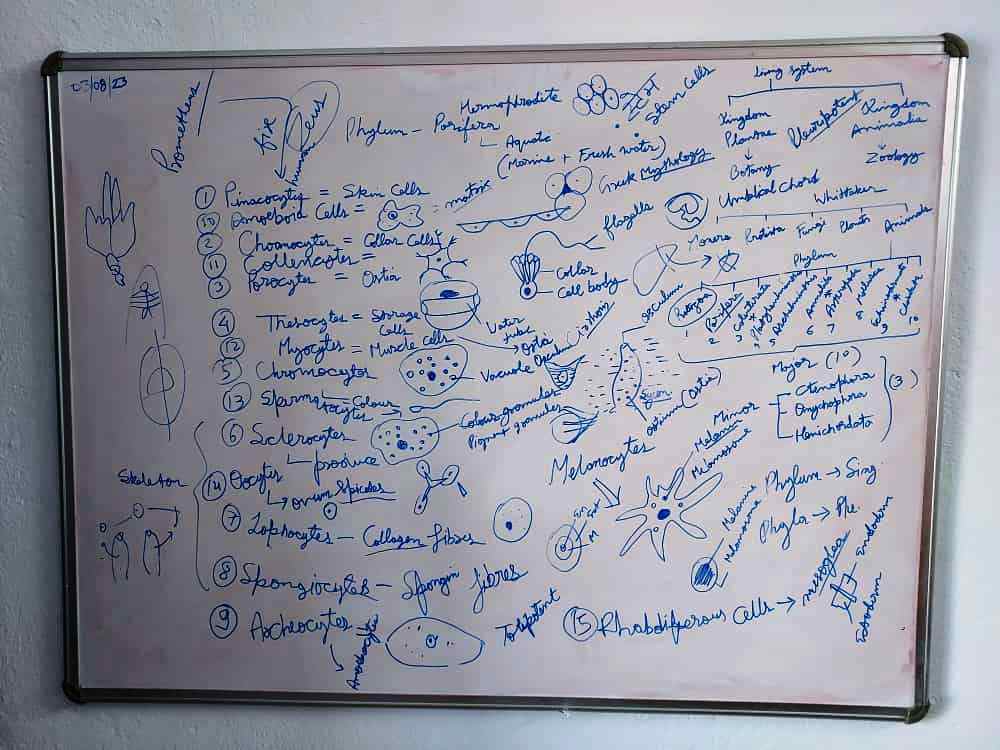 03/08/23
Prometheus
fire
Zeus
humans
Phylum - Porifera
Hermophrodite
Aquatic
(Marine + Fresh water)
Stem Cells
Greek Mythology
living system
Kingdom Plantae
Botany
Pleuripotent
Kingdom Animalia
Zoology
Umbilical Chord
Whittaker
Monera Protista Fungi Plants Animals
Phylum
Protozoa
Porifera
1 2 3 4 5 6 7 8 9 10
① Pinacocytes = Skin Cells
⑩ Amoeboid Cells = = matrix
② Choanocytes = Collar Cells
flagella
Collar
Cell body
⑪ Collencytes =
③ Porocytes = Ostia
④ Thesocytes = Storage Cells
Water tube
Ostia
Osculum
⑫ Myocytes = Muscle Cells
Vacuole
⑤ Chromocytes
⑬ Spermatocytes
Colour
Colour granules
Pigment granules
osculum
Sycon
ostium (Ostia)
Major (10)
Minor
Ctenophora
Onychophora
Hemichordata
(3)
⑥ Sclerocytes
produce
Spicules
⑭ Oocytes
ovum
Skeleton
Melanocytes
Melanin
Melanosome
Phylum → Sing.
Phyla → Plu.
⑦ Lophocytes - Collagen fibres
En
Ect
M
Melanin
Melanosome
⑧ Spongiocytes - Spongin fibres
⑨ Archeocytes
Amoebocytes
Totipotent
⑮ Rhabdiferous Cells → mesoglea
Endoderm
Ectoderm